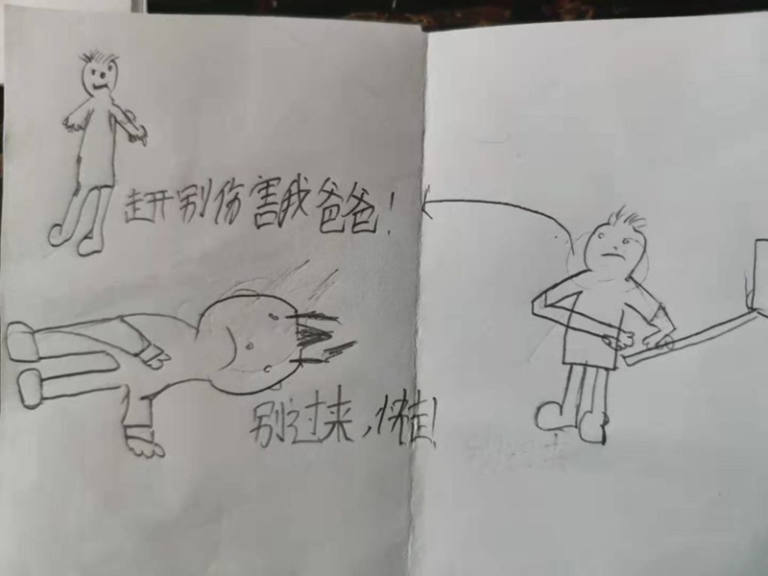 走开别伤害我爸爸！
别过来，快走！